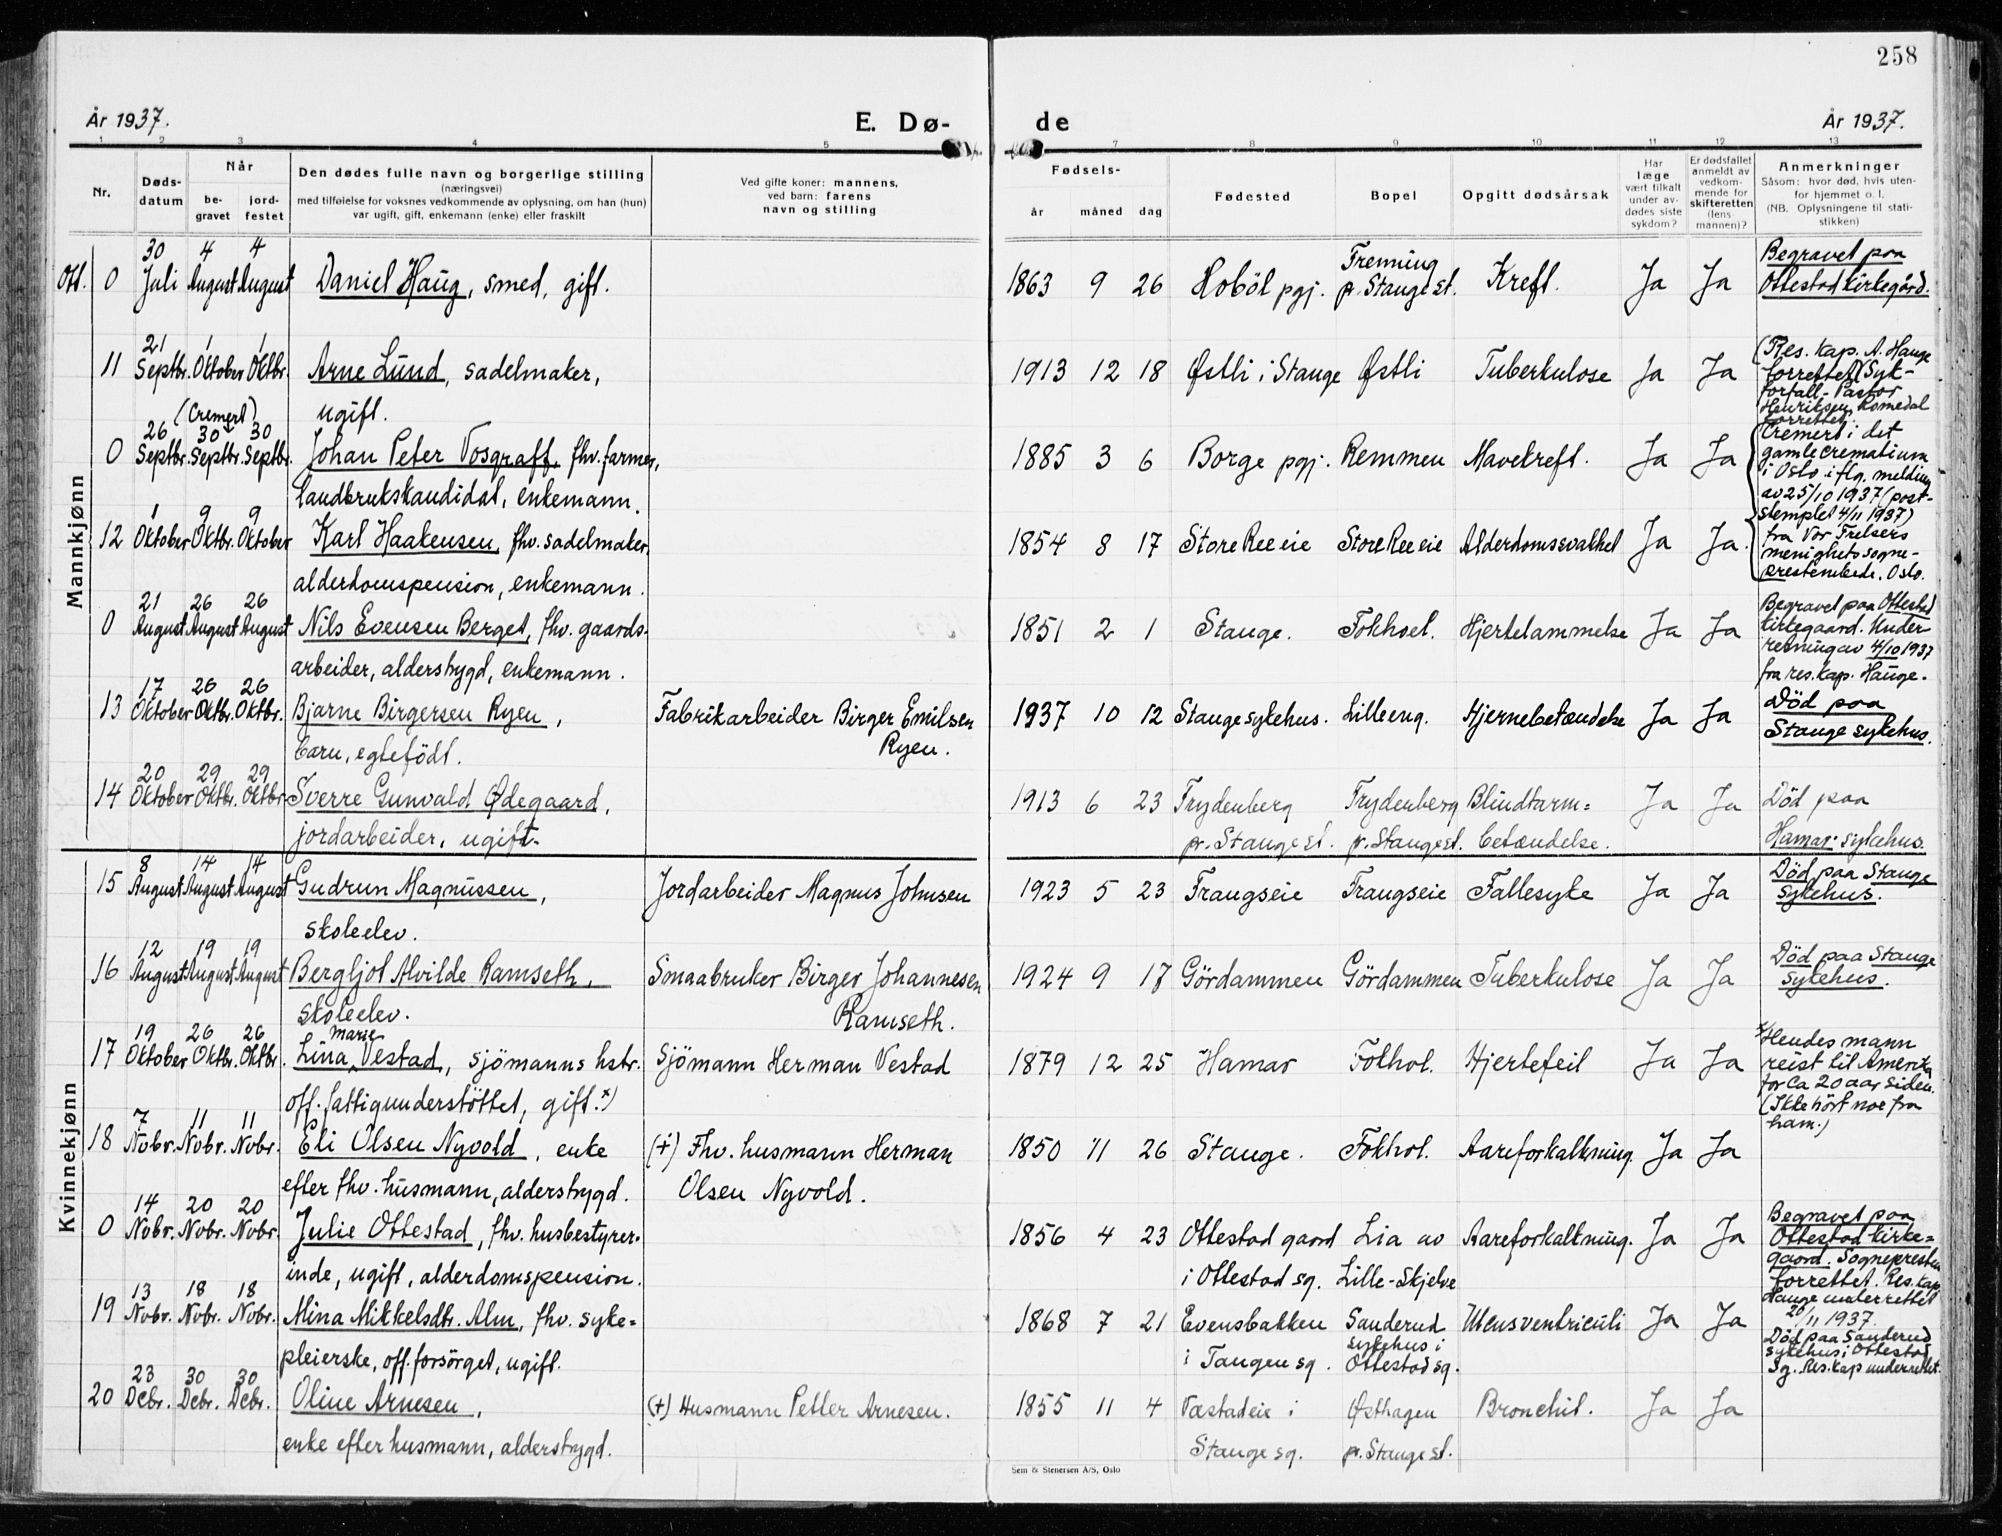 258
År 1937.
E. Dø-
de
År 1937.
1 2 3 4 5 7 8 9 10 11 12 13
Nr.
Døds-
datum
Når
be-
gravet
jord-
festet
Den dødes fulle navn og borgerlige stilling
(næringsvei)
med tilføielse for voksnes vedkommende av oplysning, om han (hun)
var ugift, gift, enkemann (enke) eller fraskilt
Ved gifte koner: mannens,
ved barn: farens
navn og stilling
Fødsels-
år måned dag
Fødested
Bopel
Opgitt dødsårsak
Har
læge
vært tilkalt
under av-
dødes siste
sykdom?
Er dødsfallet
anmeldt av
vedkom-
mende for
skifteretten
(lens-
mannen)?
Anmerkninger
Såsom: hvor død, hvis uten-
for hjemmet o. l.
(NB. Oplysningene til stati-
stikken)
Mannkjønn
30 4 4
Ott. 0 Juli August August Daniel Haug, smed, gift.
1863 9 26 Hoböl pgj. Freming
pr. Stange st. Kreft. Ja Ja
Begravet paa
Ottestad kirkegård.
21 1 1
11 Septbr. Oktober Oktbr. Arne Lund, sadelmaker,
ugift.
1913 12 18 Østli i Stange Østli Tuberkulose Ja Ja
(Res. kap. A. Hauge
forrettet (Syk-
forfall - Pastor
Henriksen, Romedal
forrettet
(Cremert)
26 30 30
0 Septbr. Septbr. Septbr. Johan Peter Vosgraff, fhv. farmer,
landbrukskandidat, enkemann.
1885 3 6 Borge pgj. Remmen Mavekreft. Ja Ja
Cremert i det
gamle crematium
i Oslo iflg. melding
av 25/10 1937 (post-
stemplet 4/11 1937)
fra Vor Frelsers
menighets sogne-
prestembede, Oslo.
1 9 9
12 Oktober Oktbr. Oktober Karl Haakensen, fhv. sadelmaker,
alderdomspension, enkemann.
1854 8 17 Store Ree eie Store Ree eie Alderdomssvakhet Ja Ja.
21 26 26
0 August August August Nils Evensen Berget, fhv. gaards-
arbeider, alderstrygd, enkemann.
1851 2 1 Stange. Fokhoel. Hjertelammelse Ja Ja
Begravet paa Ottestad
kirkegaard. Under-
retning av 4/10 1937
fra res. kap. Hauge.
17 26 26
13 Oktober Oktbr. Oktbr. Bjarne Birgersen Ryen,
barn, egtefödt.
Fabrikarbeider Birger Emilsen
Ryen.
1937 10 12 Stange sykehus. Lilleeng. Hjernebetændelse Ja Ja
Död paa
Stange sykehus.
20 29 29
14 Oktober Oktbr. Oktbr. Sverre Gunvald Ødegaard,
jordarbeider, ugift.
1913 6 23 Frydenberg
pr. Stange st. Frydenberg
pr. Stange st. Blindtarm=
betændelse. Ja Ja
Död paa
Hamar sykehus.
Kvinnekjønn
8 14 14
15 August August August Gudrun Magnussen,
skoleelev.
Jordarbeider Magnus Johnsen
1923 5 23 Frangseie Frangseie Fallesyke Ja Ja
Död paa Stange
sykehus.
12 19 19
16 August August August Bergljot Alvilde Ramseth,
skoleelev.
Smaabruker Birger Johannesen
Ramseth.
1924 9 17 Gördammen Gördammen Tuberkulose Ja Ja
Död paa Stange
sykehus.
19 26 26 Marie
17 Oktober Oktbr. Oktbr. Lina Vestad, sjömanns hstr.
off. fattigunderstöttet, gift. x)
Sjömann Herman Vestad
1879 12 25 Hamar Fokhol. Hjertefeil Ja Ja
x/ Hendes mann
reist til Amerika
for ca 20 aar siden.
(Ikke hört noe fra
ham.)
7 11 11
18 Nobr. Nobr. Nobr. Eli Olsen Nyvold, enke
efter fhv. husmann, alderstrygd.
(+) Fhv. husmann Herman
Olsen Nyvold.
1850 11 26 Stange. Fokhol. Aareforkalkning. Ja Ja
14 20 20
0 Nobr. Nobr. Nobr. Julie Ottestad, fhv. husbestyrer-
inde, ugift, alderdomspension.
1856 4 23 Ottestad gaard
i Ottestad sg. Lia av
Lille-Skjelve Aareforkalkning. Ja Ja
Begravet paa
Ottestad kirke=
gaard. Sognepresten
forrettet. Res. kap.
Hauge underrettet
20/11 1937.
13 18 18
19 Nobr. Nobr. Nobr. Mina Mikkelsdtr. Alm, fhv. syke=
pleierske, off. forsörget, ugift.
1868 7 21 Evensbakken
i Tangen sg. Sanderud
sykehus i
Ottestad sg. Ulcus ventriculi Ja Ja
Död paa Sanderud
sykehus, Ottestad
sg. Res. kap underrettet.
23 30 30
20 Decbr. Decbr. Decbr. Oline Arnesen,
enke efter husmann, alderstrygd.
(+) Husmann Petter Arnesen.
1855 11 4 Væstadeie i
Stange sg. Østhagen
pr. Stange st. Bronchit. Ja Ja
Sem & Stenersen A/S, Oslo